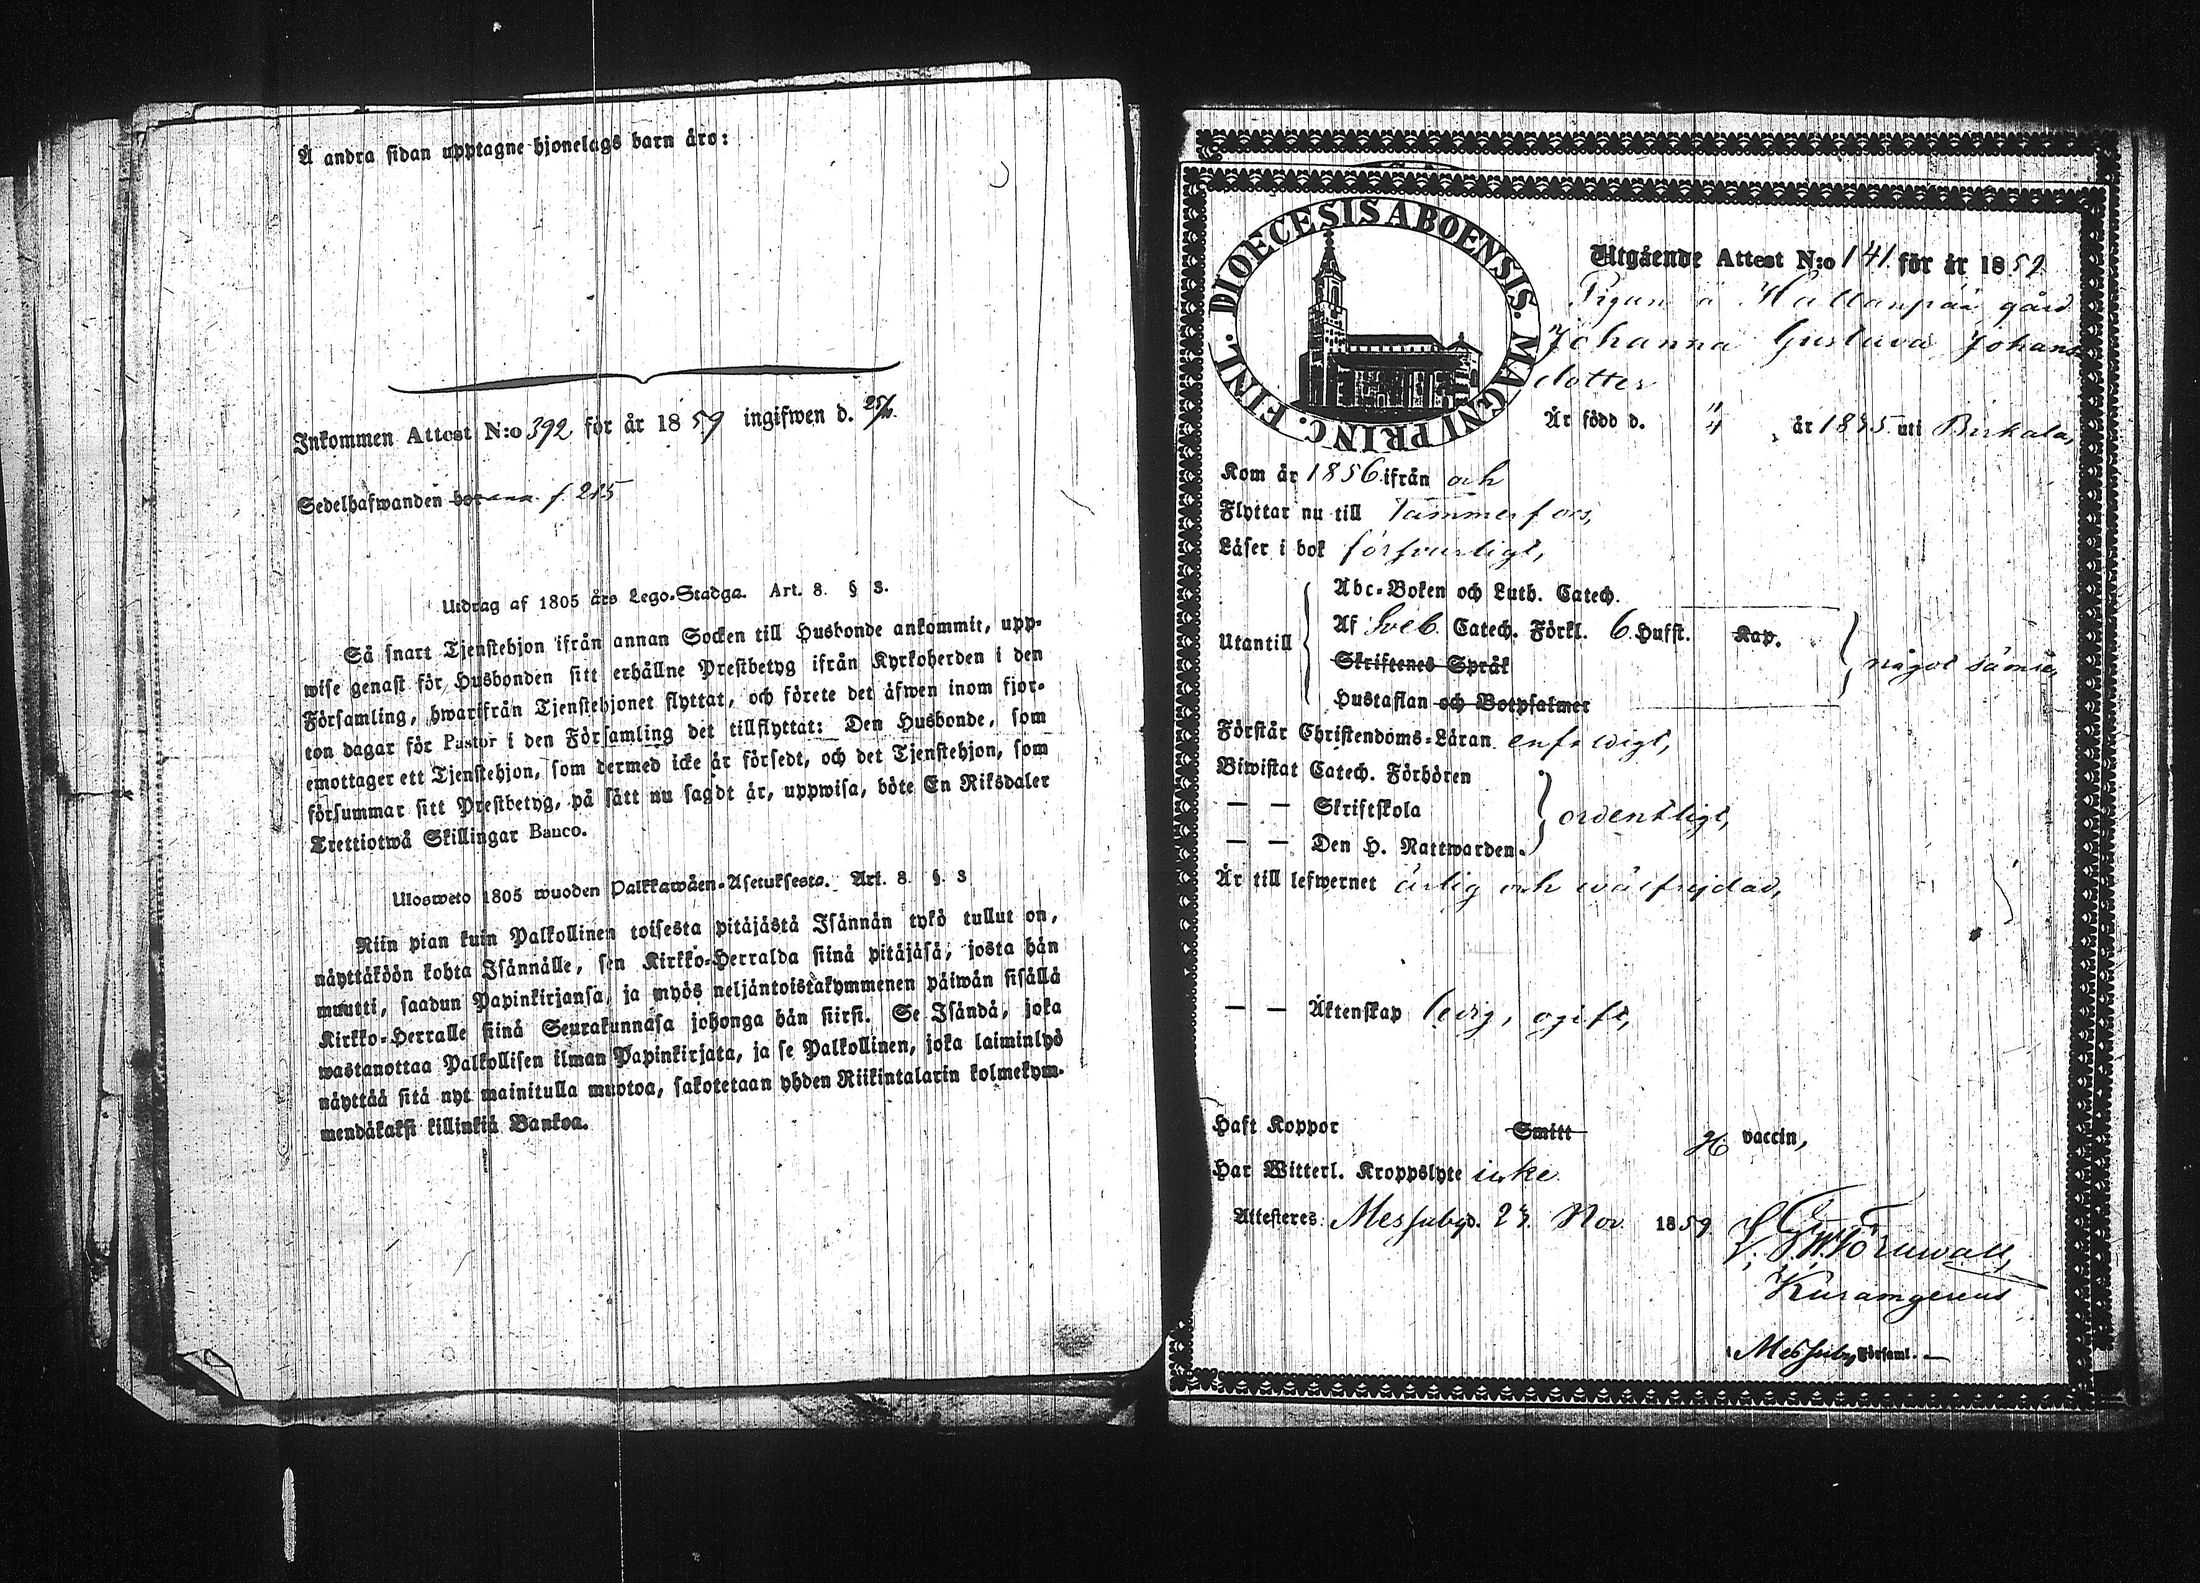 Å andra sidan upptagne hjonelags barn äro:
Inkommen Attest N:o 392 för år 1859 ingifwen d. 25/11.
Sedelhafwanden f 215
Utdrag af 1805 års Lego-Stadga. Art. 8. § 3.
Så snart Tjenstehjon ifrån annan Socken till Husbonde ankommit, upp-
wise genast för Husbonden sitt erhållne Prestbetyg ifrån Kyrkoherden i den
Församling, hwarifrån Tjenstehjonet flyttat, och förete det äfwen inom fjor-
ton dagar för Pastor i den Församling det tillflyttat: Den Husbonde, som
emottager ett Tjenstehjon, som dermed icke är försedt, och det Tjenstehjon, som
försummar sitt Prestbetyg, på sätt nu sagdt är, uppwisa, böte En Riksdaler
Trettiotwå Skillingar Banco.
Ulosweto 1805 wuoden Palkkawäen-Asetuksesta. Art. 8. §. 3
Niin pian kuin Palkollinen toisesta pitäjästä Isännän tykö tullut on,
näyttäköön kohta Isännälle, sen Kirkko-Herralda siinä pitäjäsä, josta hän
muutti, saadun Papinkirjansa, ja myös neljäntoistakymmenen päiwän sisällä
Kirkko-Herralle siinä Seurakunnasa johonga hän siirsi. Se Isändä, joka
wastanottaa Palkollisen ilman Papinkirjata, ja se Palkollinen, joka laiminlyö
näyttää sitä nyt mainitulla muotoa, sakotetaan yhden Riikintalarin kolmekym-
mendäkaksi killinkiä Bankoa.
DIOECESIS ABOENSIS. MAGNI PRINC. FINL.
Utgående Attest N:o 141 för år 1859
Pigan å gård
Johanna Gustava Johans
dotter
Är född d. 4/4, år 1835 uti Birkala,
Kom år 1856 ifrån och
Flyttar nu till Tammerfors,
Läser i bok försvarligt,
Utantill
Abc-Boken och Luth. Catech.
Af Sveb. Catech. Förkl. 6 Hufst. Kap.
Skriftenes Språk
Hustaflan och Botpsalmer
något sämre,
Förstår Christendoms-Läran enfaldigt,
Biwistat Catech. Förhören
— — Skriftskola
— — Den H. Nattwarden.
ordentligt,
Är till lefwernet ärlig och wälfrejdad,
— — Äktenskap ledig, ogift,
Haft Koppor Smitt H. vaccin,
Har Witterl. Kroppslyte icke
Attesteres Messuby d. 24. Nov. 1859
Törnwall,
Messuby Församl.